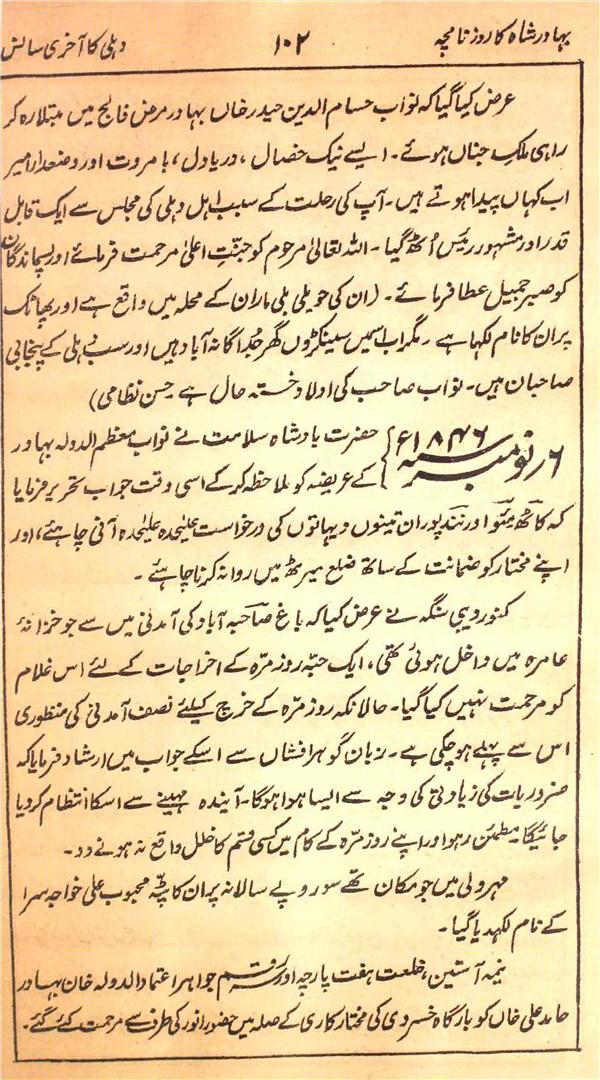 بہادر شاہ کا روزنامچہ ۱۰۲ دہلی کا آخری سانس
عرض کیا گیا کہ نواب حسام الدین حیدر خاں بہادر مرض فالج میں مبتلا رہ کر
راہی ملک جناں ہوئے۔ ایسے نیک خصال، دریا دل، با مروت اور وضعدار امیر
اب کہاں پیدا ہوتے ہیں۔ آپ کی رحلت کے سبب اہل دہلی کی مجلس سے ایک قابل
قدر اور مشہور رئیس اُٹھ گیا۔ اللہ تعالیٰ مرحوم کو جنّتِ اعلیٰ مرحمت فرمائے اور پسماندگان
کو صبر جمیل عطا فرمائے۔ (ان کی حویلی بلی ماران کے محلہ میں واقع ہے اور پھاٹک
پر ان کا نام لکھا ہے۔ مگر اب اسمیں سینکڑوں گھر جُدا گانہ آباد ہیں اور سب دہلی کے پنجابی
صاحبان ہیں۔ نواب صاحب کی اولاد خستہ حال ہے۔ حسن نظامی)
۶ر نومبر سنہ ۱۸۴۶ء} حضرت بادشاہ سلامت نے نواب معظم الدولہ بہادر
کے عریضہ کو ملاحظہ کر کے اسی وقت جواب تحریر فرمایا
کہ کاٹھ اور نند پور ان تینوں دیہاتوں کی درخواست علیٰحدہ علیٰحدہ آنی چاہئے، اور
اپنے مختار کو ضمانت کے ساتھ ضلع میرٹھ میں روانہ کرنا چاہئے۔
کنور دیبی سنگہ نے عرض کیا کہ باغ صاحبہ آباد کی آمدنی میں سے جو خزانۂ
عامرہ میں داخل ہوئی تھی، ایک حبّہ روز مرّہ کے اخراجات کے لئے اس غلام
کو مرحمت نہیں کیا گیا۔ حالانکہ روز مرّہ کے خرچ کیلئے نصف آمدنی کی منظوری
اس سے پہلے ہو چکی ہے۔ زبان گوہر افشاں سے اسکے جواب میں ارشاد فرمایا کہ
ضروریات کی زیادتی کی وجہ سے ایسا ہوا ہوگا۔ آیندہ مہینے سے اسکا انتظام کر دیا
جائیگا۔ مطمئن رہو اور اپنے روز مرّہ کے کام میں کسی قسم کا خلل واقع نہ ہونے دو۔
مہرولی میں جو مکان تھے سو روپے سالانہ پر ان کا پٹّہ محبوب علی خواجہ سرا
کے نام لکھدیا گیا۔
نیمہ آستین، خلعت ہفت پارچہ اور سہ رقم جواہر اعتماد الدولہ خان بہادر
حامد علی خاں کو بارگاہ خسروی کی مختار کاری کے صلہ میں حضور انور کی طرف سے مرحمت کئے گئے۔